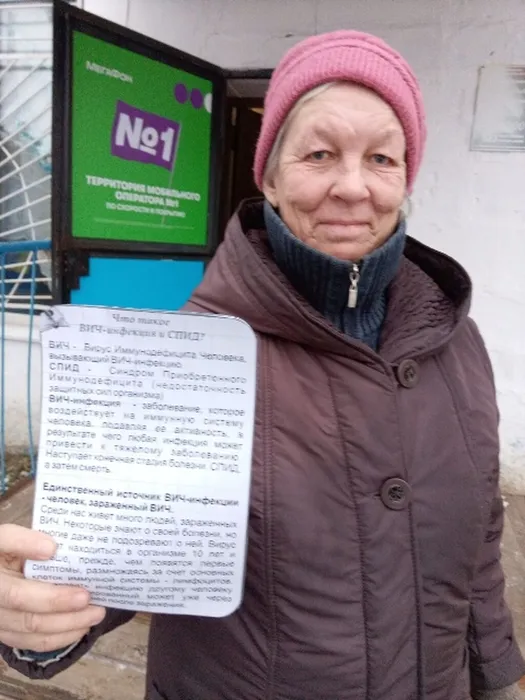 МЕГАФОН
№1
ТЕРРИТОРИЯ МОБИЛЬНОГО
ОПЕРАТОРА №1
ПО СКОРОСТИ И ПОКРЫТИЮ
Что такое
ВИЧ-инфекция и СПИД?
ВИЧ - Вирус Иммунодефицита Человека,
вызывающий ВИЧ-инфекцию.
СПИД - Синдром Приобретенного
Иммунодефицита (недостаточность
защитных сил организма)
ВИЧ-инфекция - заболевание, которое
воздействует на иммунную систему
человека, подавляя ее активность, в
результате чего любая инфекция может
привести к тяжелому заболеванию.
Наступает конечная стадия болезни СПИД,
а затем смерть.
Единственный источник ВИЧ-инфекции
- человек, зараженный ВИЧ.
Среди нас живет много людей, зараженных
ВИЧ. Некоторые знают о своей болезни, но
многие даже не подозревают о ней. Вирус
находиться в организме 10 лет и
прежде, чем появятся первые
симптомы, размножаясь за счет основных
клеток иммунной системы - лимфоцитов.
инфекцию другому человеку
может уже через
после заражения.